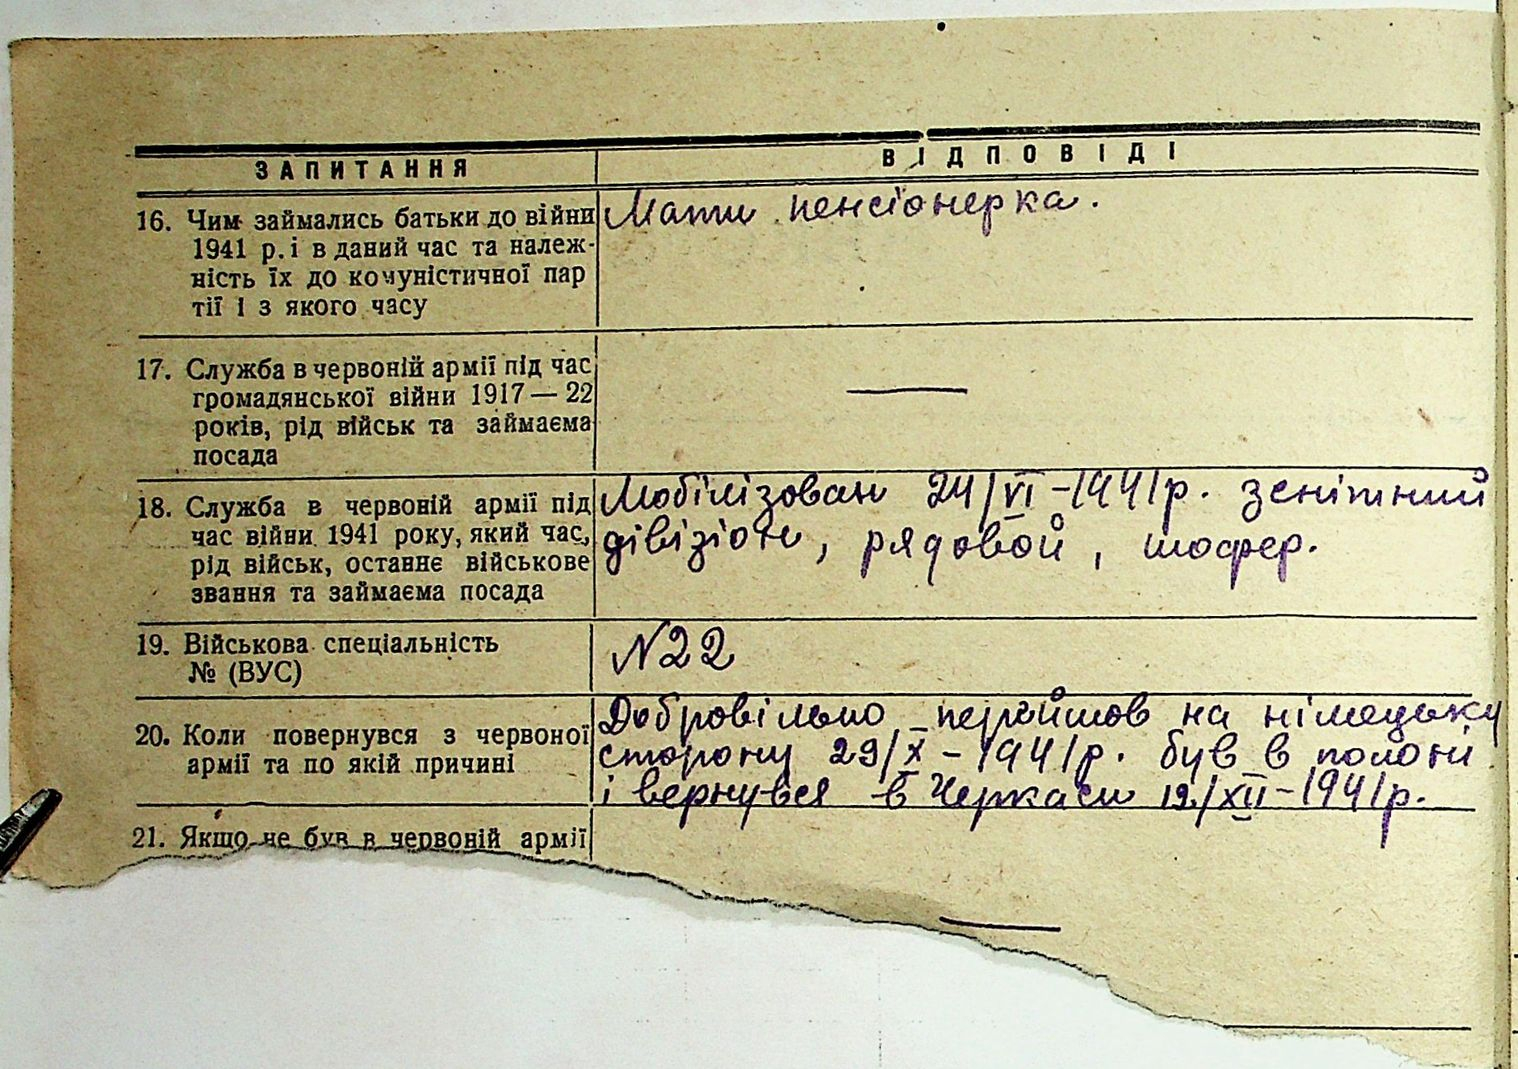 ЗАПИТАННЯ
ВІДПОВІДІ
16. Чим займались батьки до війни
1941 р. і в даний час та належ-
ність їх до комуністичної пар
тії і з якого часу
Мати пенсіонерка.
17. Служба в червоній армії під час
громадянської війни 1917 — 22
років, рід військ та займаєма
посада
—
18. Служба в червоній армії під
час війни 1941 року, який час,
рід військ, останнє військове
звання та займаєма посада
Мобілізован 24/VI-1941р. зенітний
дівізіон, рядовой, шофер.
19. Військова спеціальність
№ (ВУС)
N22
20. Коли повернувся з червоної
армії та по якій причині
Добровільно перейшов на німецьку
сторону 29/X-1941р. був в полоні
і вернувся в Черкаси 12/XII-1941р.
21. Якщо не був в червоній армії
—